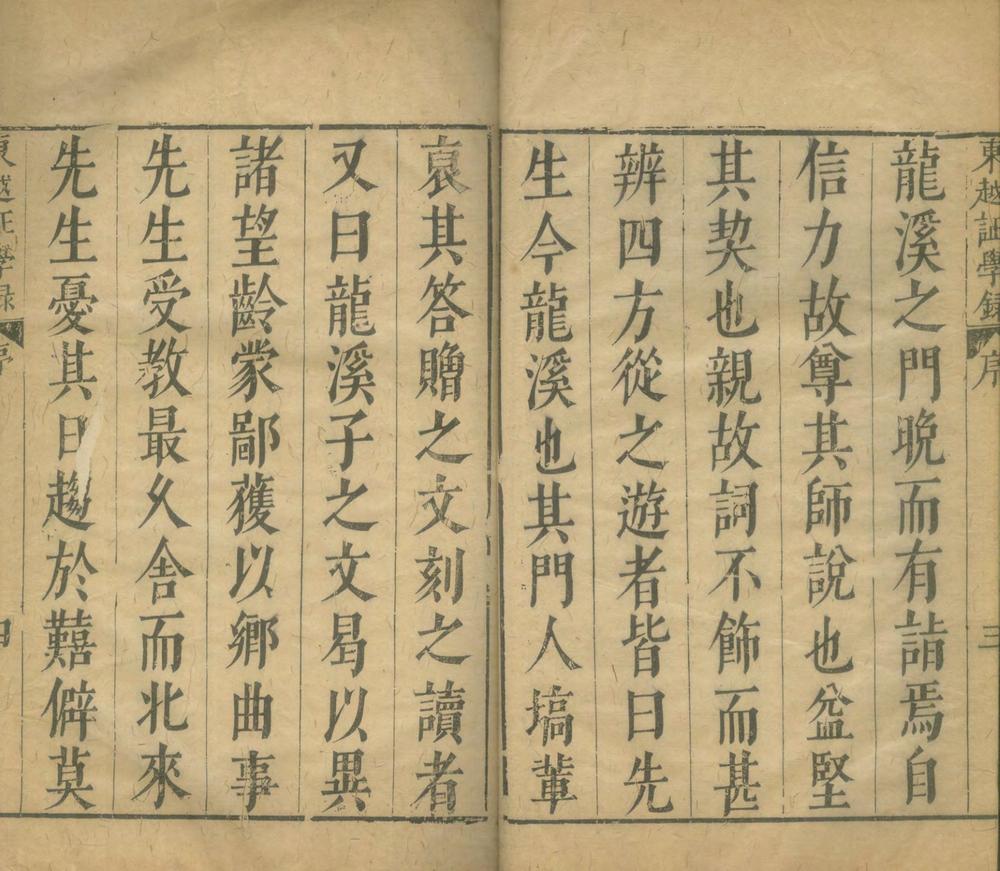 東越証學錄 序 三
龍溪之門晚而有詣焉自
信力故尊其師說也益堅
其契也親故詞不飾而甚
辨四方從之遊者皆曰先
生今龍溪也其門人塙輩
裒其答贈之文刻之讀者
又曰龍溪子之文曷以異
諸望齡蒙鄙獲以鄉曲事
先生受教最久舍而北來
先生憂其日趨於囏僻莫
東越証學録 序 四